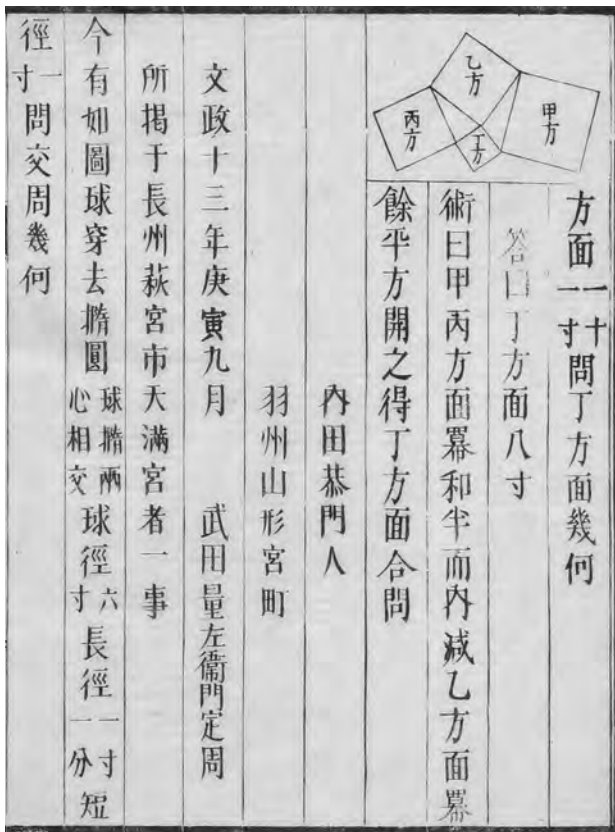 方面一十一寸問丁方面幾何
答曰丁方面八寸
術曰甲丙方面冪和半而內減乙方面冪
甲方
乙方
丁方
丙方
餘平方開之得丁方面合問
內田恭門人
羽州山形宮町
文政十三年庚寅九月 武田量左衞門定周
所揭于長州萩宮市天滿宮者一事
今有如圖球穿去撱圓球撱兩心相交球徑六寸長徑一寸一分短
徑一寸問交周幾何